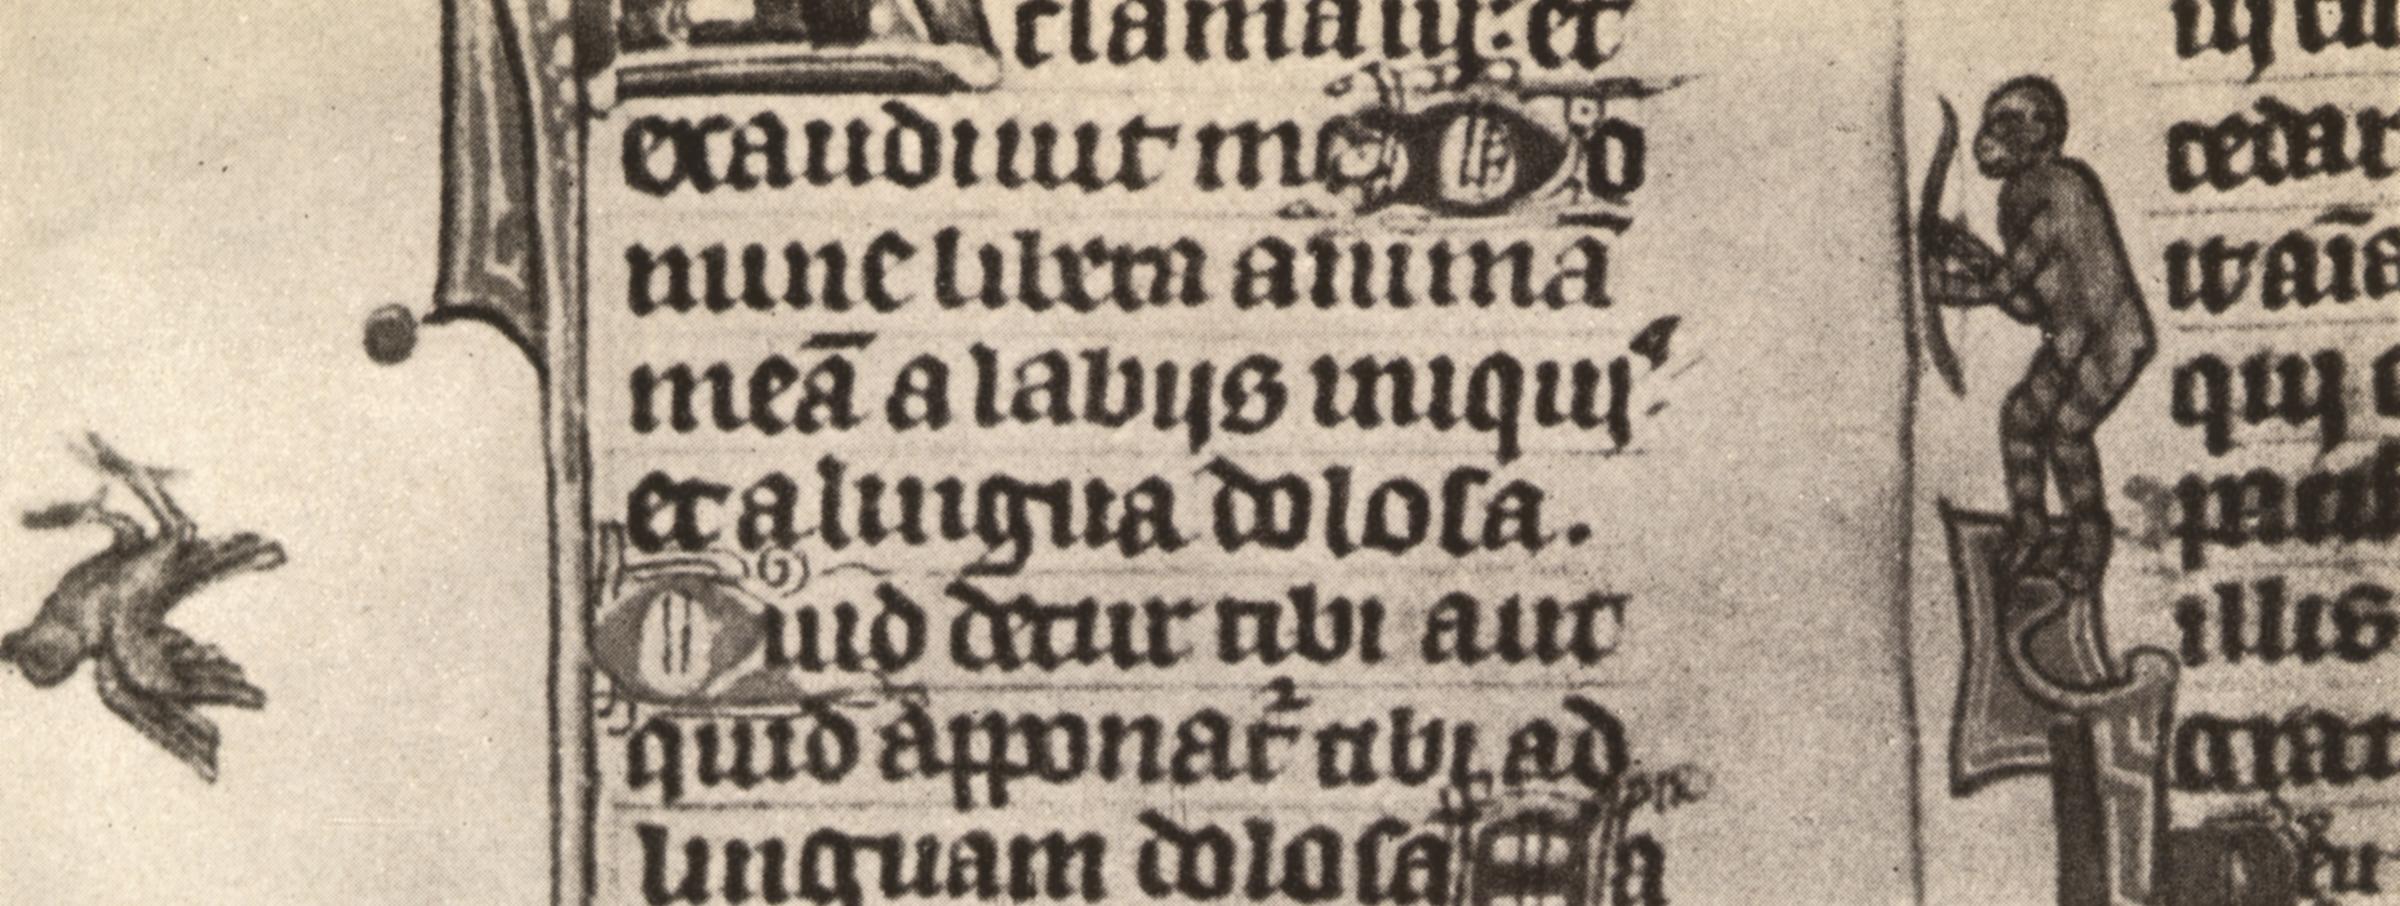 clamaui: et
exaudiuit me Do
mine libera anima
meā a labijs iniquis
et a lingua dolosa.
Quid detur tibi aut
quid apponat᷑ tibi ad
linguam dolosa Sa
cedar
it aīa
qui
illis
grat